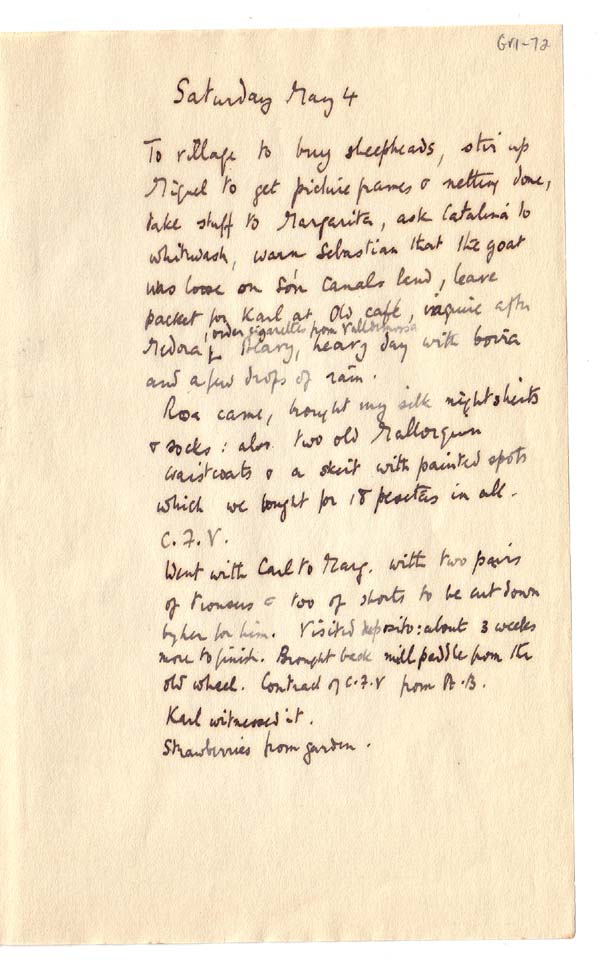 GR1-72
Saturday May 4
To village to buy sheepheads, stir up
Miguel to get picture frames & netting done,
take stuff to Margarita, ask Catalina to
whitwash, warn Sebastian that the goat
was loose on Són Canals land, leave
packet for Karl at Old café, inquire after
, order cigarettes from Valldemossa
Medora. Bleary, heavy day with boira
and a few drops of rain.
Rosa came, brought my silk nightshirts
& socks: also two old Mallorquin
waistcoats & a skirt with painted spots
which we bought for 18 pesetas in all.
C.F.V.
Went with Carl to Marg. with two pairs
of trousers & two of shorts to be cut down
by her for him. Visited deposito: about 3 weeks
more to finish. Brought back mill peddle from the
old wheel. Contract of C.F.V from A.B.
Karl witnessed it.
Strawberries from garden.